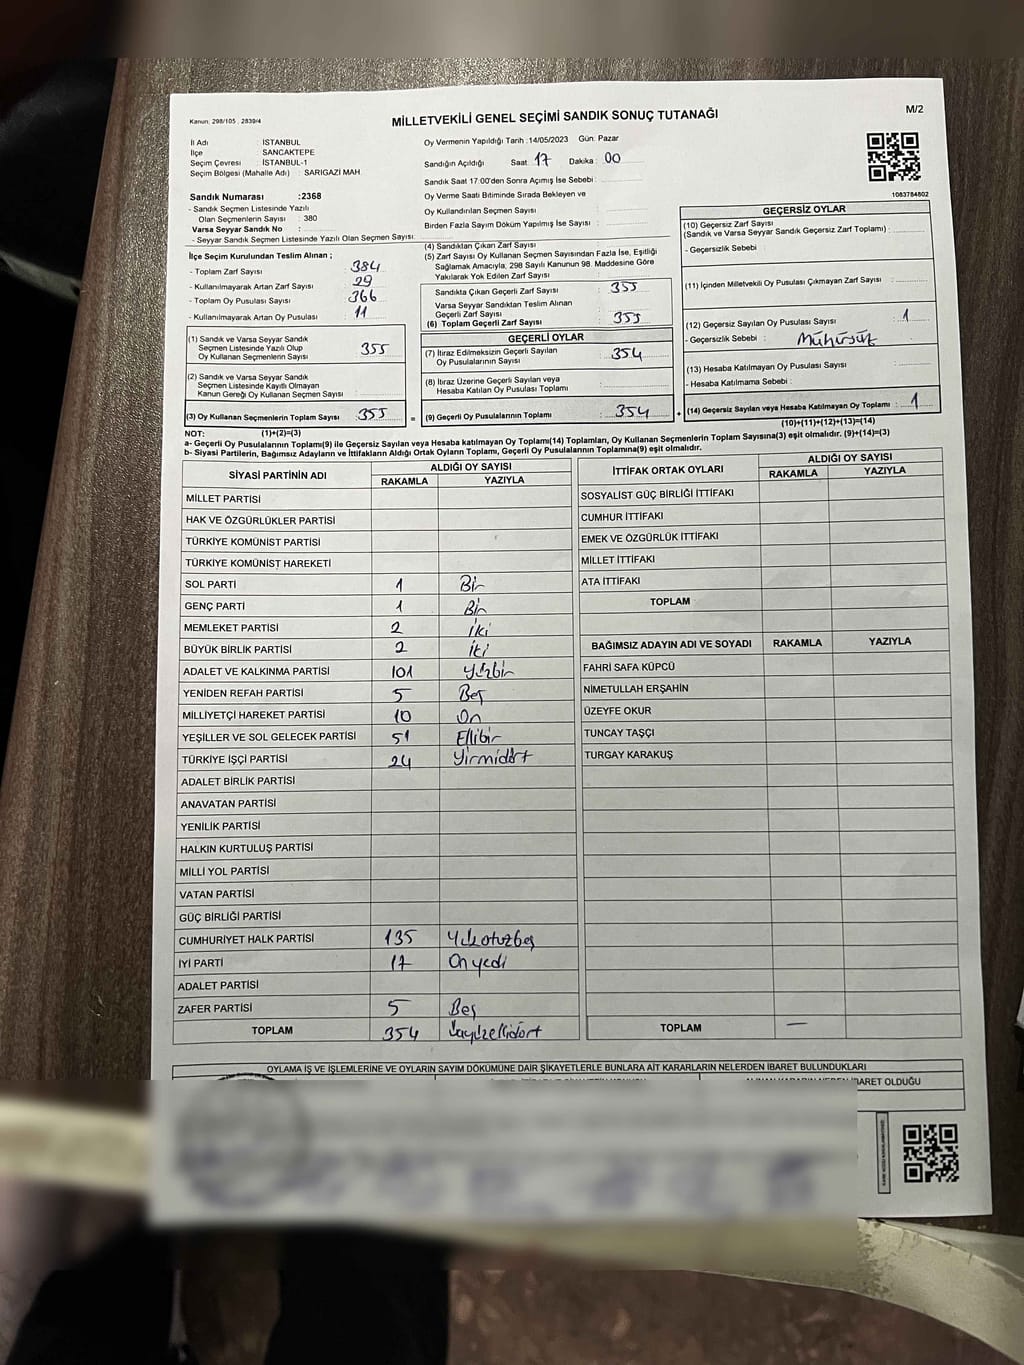 Kanun: 298/105 , 2839/4
MİLLETVEKİLİ GENEL SEÇİMİ SANDIK SONUÇ TUTANAĞI
M/2
İl Adı : İSTANBUL
İlçe : SANCAKTEPE
Seçim Çevresi : İSTANBUL-1
Seçim Bölgesi (Mahalle Adı) : SARIGAZİ MAH.
Sandık Numarası :2368
- Sandık Seçmen Listesinde Yazılı
Olan Seçmenlerin Sayısı : 380
Varsa Seyyar Sandık No :
- Seyyar Sandık Seçmen Listesinde Yazılı Olan Seçmen Sayısı:
Oy Vermenin Yapıldığı Tarih :14/05/2023 Gün: Pazar
Sandığın Açıldığı Saat: 17 Dakika: 00
Sandık Saat 17:00'den Sonra Açımış İse Sebebi :
Oy Verme Saati Bitiminde Sırada Bekleyen ve
Oy Kullandırılan Seçmen Sayısı :
Birden Fazla Sayım Döküm Yapılmış İse Sayısı :
1083784802
İlçe Seçim Kurulundan Teslim Alınan ;
- Toplam Zarf Sayısı : 384
- Kullanılmayarak Artan Zarf Sayısı : 29
- Toplam Oy Pusulası Sayısı : 366
- Kullanılmayarak Artan Oy Pusulası : 11
(1) Sandık ve Varsa Seyyar Sandık
Seçmen Listesinde Yazılı Olup
Oy Kullanan Seçmenlerin Sayısı : 355
(2) Sandık ve Varsa Seyyar Sandık
Seçmen Listesinde Kayıtlı Olmayan
Kanun Gereği Oy Kullanan Seçmen Sayısı :
(3) Oy Kullanan Seçmenlerin Toplam Sayısı : 355
(1)+(2)=(3)
(4) Sandıktan Çıkan Zarf Sayısı :
(5) Zarf Sayısı Oy Kullanan Seçmen Sayısından Fazla İse, Eşitliği
Sağlamak Amacıyla, 298 Sayılı Kanunun 98. Maddesine Göre
Yakılarak Yok Edilen Zarf Sayısı :
Sandıkta Çıkan Geçerli Zarf Sayısı : 355
Varsa Seyyar Sandıktan Teslim Alınan
Geçerli Zarf Sayısı :
(6) Toplam Geçerli Zarf Sayısı : 355
GEÇERLİ OYLAR
(7) İtiraz Edilmeksizin Geçerli Sayılan
Oy Pusulalarının Sayısı : 354
(8) İtiraz Üzerine Geçerli Sayılan veya
Hesaba Katılan Oy Pusulası Toplamı :
= (9) Geçerli Oy Pusulalarının Toplamı : 354 +
GEÇERSİZ OYLAR
(10) Geçersiz Zarf Sayısı
(Sandık ve Varsa Seyyar Sandık Geçersiz Zarf Toplamı) :
- Geçersizlik Sebebi :
(11) İçinden Milletvekili Oy Pusulası Çıkmayan Zarf Sayısı :
(12) Geçersiz Sayılan Oy Pusulası Sayısı : 1
- Geçersizlik Sebebi : Mühürsüz
(13) Hesaba Katılmayan Oy Pusulası Sayısı :
- Hesaba Katılmama Sebebi :
(14) Geçersiz Sayılan veya Hesaba Katılmayan Oy Toplamı : 1
(10)+(11)+(12)+(13)=(14)
NOT:
a- Geçerli Oy Pusulalarının Toplamı(9) ile Geçersiz Sayılan veya Hesaba katılmayan Oy Toplamı(14) Toplamları, Oy Kullanan Seçmenlerin Toplam Sayısına(3) eşit olmalıdır. (9)+(14)=(3)
b- Siyasi Partilerin, Bağımsız Adayların ve İttifakların Aldığı Ortak Oyların Toplamı, Geçerli Oy Pusulalarının Toplamına(9) eşit olmalıdır.
SİYASİ PARTİNİN ADI ALDIĞI OY SAYISI
RAKAMLA YAZIYLA
MİLLET PARTİSİ
HAK VE ÖZGÜRLÜKLER PARTİSİ
TÜRKİYE KOMÜNİST PARTİSİ
TÜRKİYE KOMÜNİST HAREKETİ
SOL PARTİ 1 Bir
GENÇ PARTİ 1 Bir
MEMLEKET PARTİSİ 2 İki
BÜYÜK BİRLİK PARTİSİ 2 İki
ADALET VE KALKINMA PARTİSİ 101 Yüzbir
YENİDEN REFAH PARTİSİ 5 Beş
MİLLİYETÇİ HAREKET PARTİSİ 10 On
YEŞİLLER VE SOL GELECEK PARTİSİ 51 Ellibir
TÜRKİYE İŞÇİ PARTİSİ 24 Yirmidört
ADALET BİRLİK PARTİSİ
ANAVATAN PARTİSİ
YENİLİK PARTİSİ
HALKIN KURTULUŞ PARTİSİ
MİLLİ YOL PARTİSİ
VATAN PARTİSİ
GÜÇ BİRLİĞİ PARTİSİ
CUMHURİYET HALK PARTİSİ 135 Yüzotuzbeş
İYİ PARTİ 17 Onyedi
ADALET PARTİSİ
ZAFER PARTİSİ 5 Beş
TOPLAM 354 Üçyüzellidört
İTTİFAK ORTAK OYLARI ALDIĞI OY SAYISI
RAKAMLA YAZIYLA
SOSYALİST GÜÇ BİRLİĞİ İTTİFAKI
CUMHUR İTTİFAKI
EMEK VE ÖZGÜRLÜK İTTİFAKI
MİLLET İTTİFAKI
ATA İTTİFAKI
TOPLAM
BAĞIMSIZ ADAYIN ADI VE SOYADI RAKAMLA YAZIYLA
FAHRİ SAFA KÜPCÜ
NİMETULLAH ERŞAHİN
ÜZEYFE OKUR
TUNCAY TAŞÇI
TURGAY KARAKUŞ
TOPLAM —
OYLAMA İŞ VE İŞLEMLERİNE VE OYLARIN SAYIM DÖKÜMÜNE DAİR ŞİKAYETLERLE BUNLARA AİT KARARLARIN NELERDEN İBARET BULUNDUKLARI
OLDUĞU